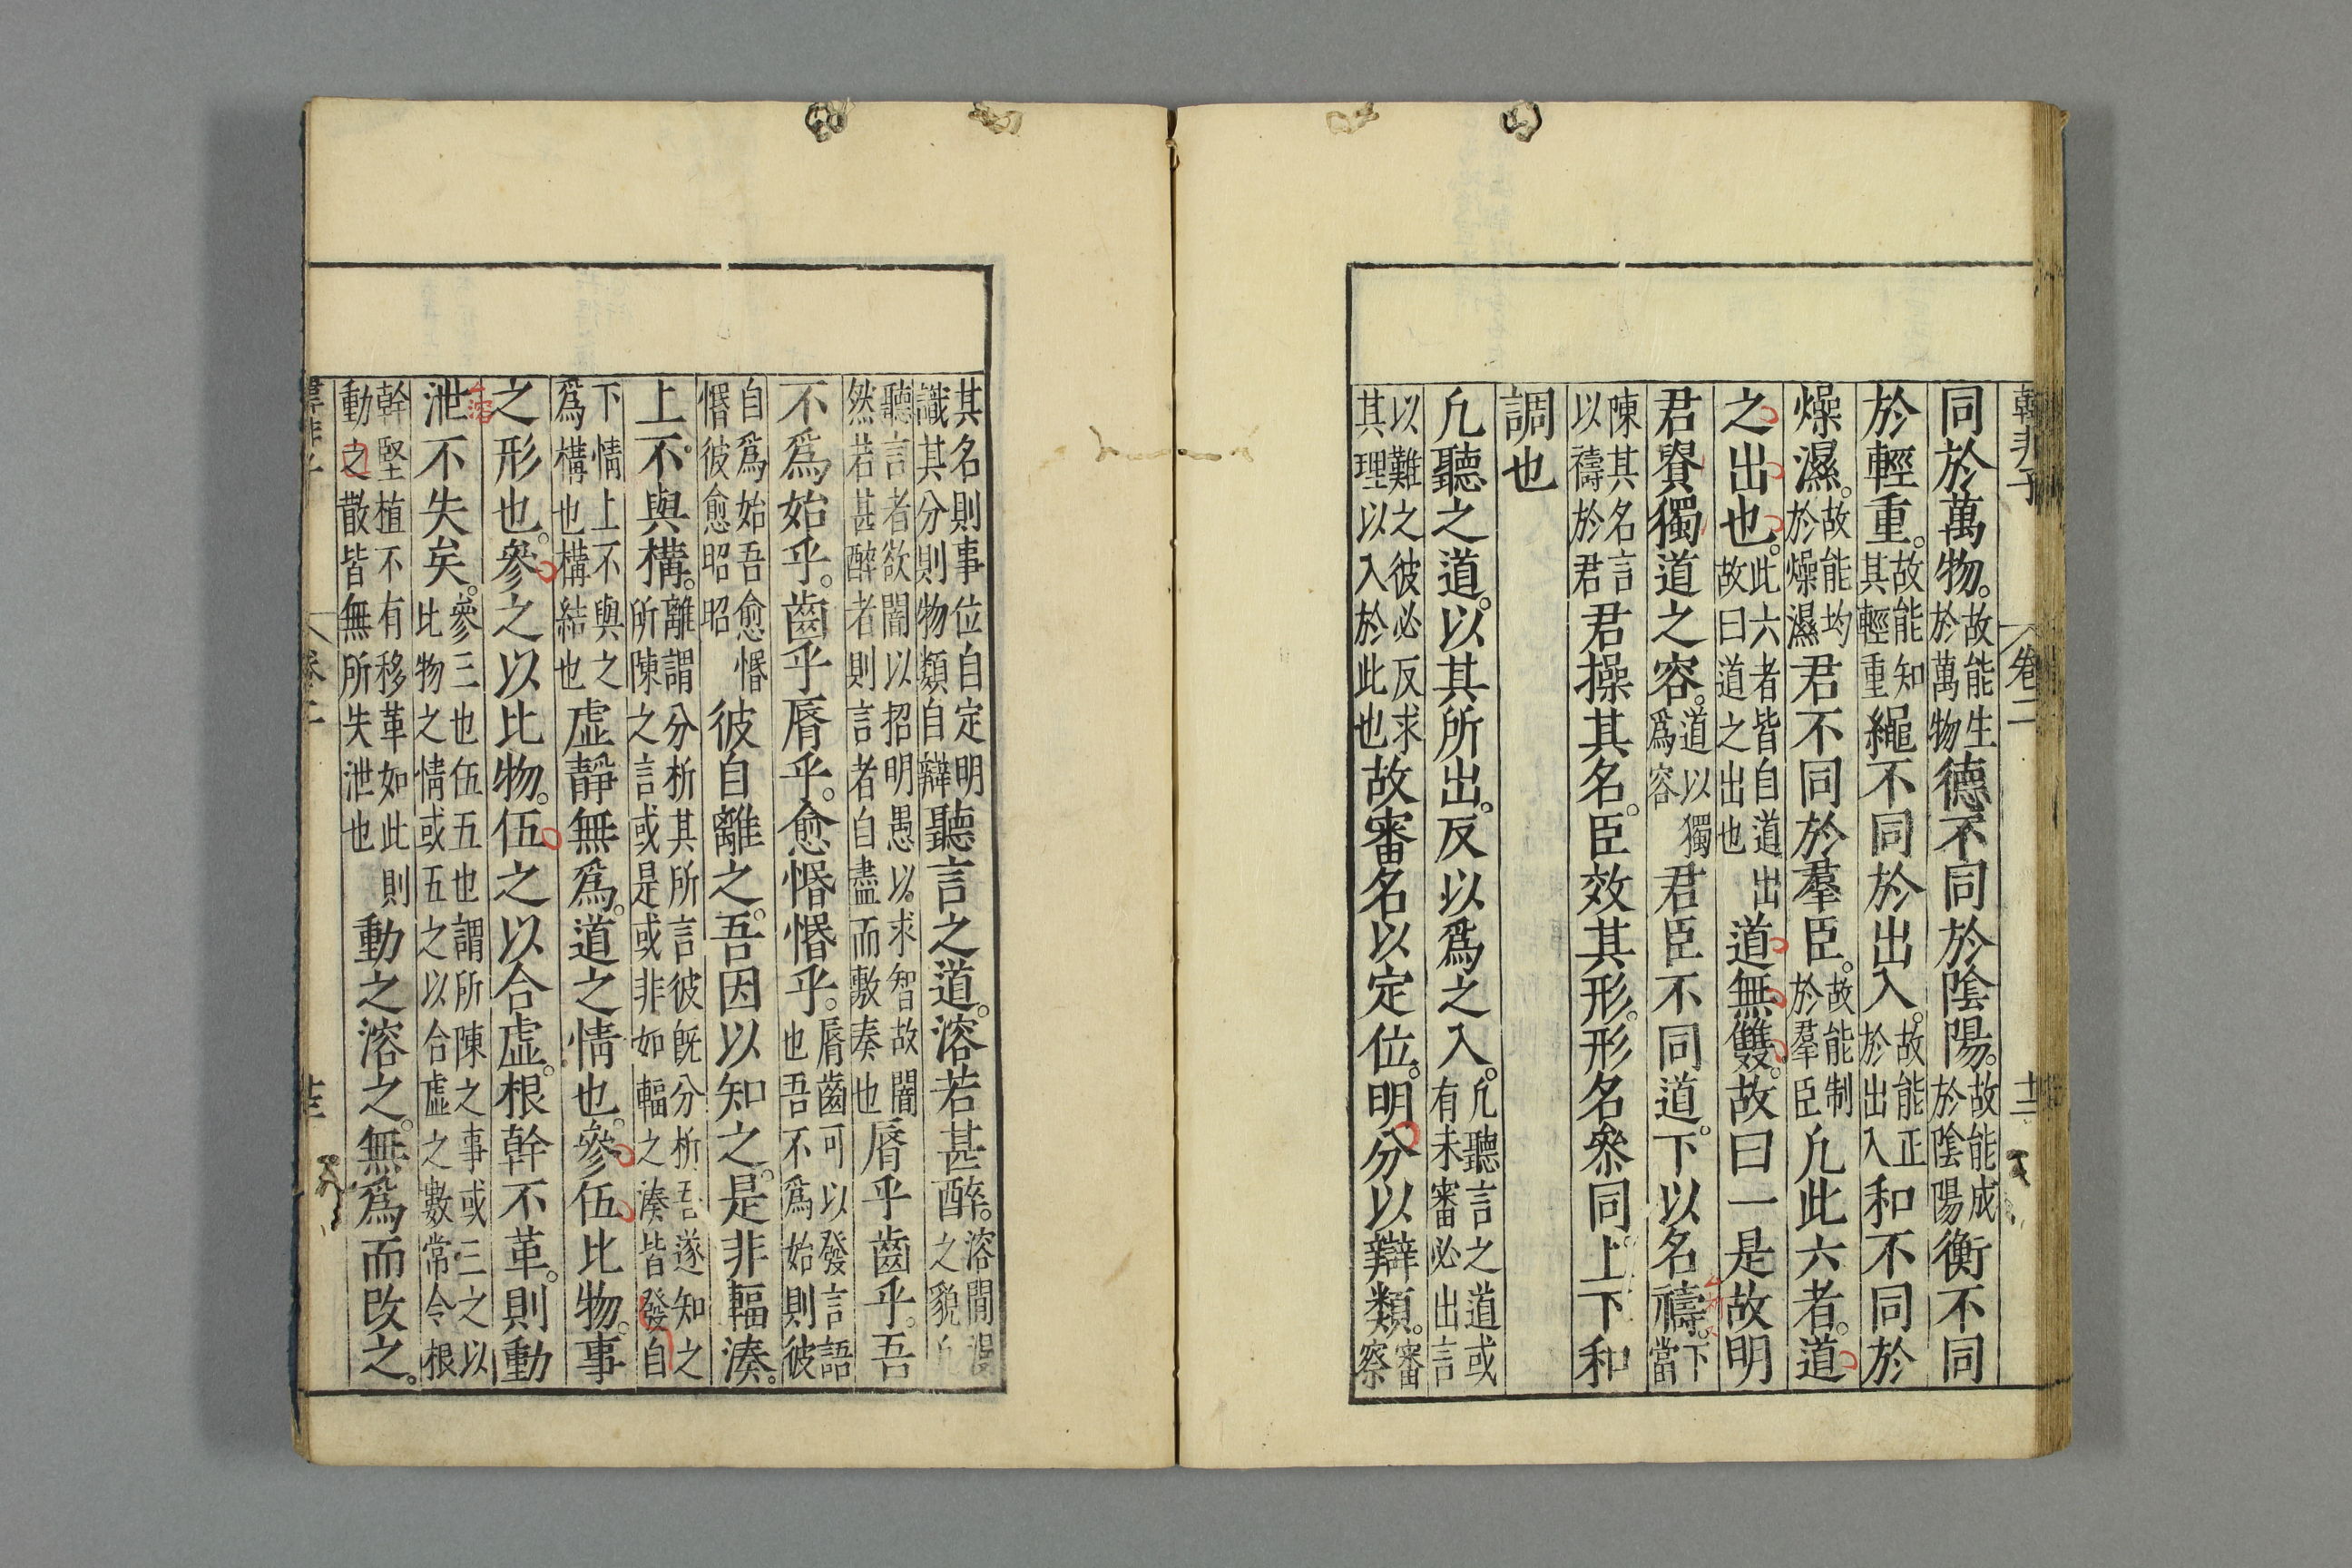 韓非子 卷二 十二
同於萬物。故能生於萬物德不同於陰陽。故能成於陰陽衡不同
於輕重。故能知其輕重繩不同於出入。故能正於出入和不同於
燥濕。故能均於燥濕君不同於羣臣。故能制於羣臣凡此六者。道
之出也。此六者皆自道出故曰道之出也道無雙。故曰一是故明
君貴獨道之容。道以獨爲容君臣不同道。下以名禱。下當
陳其名言以禱於君君操其名。臣效其形。形名叅同。上下和
調也
凡聽之道。以其所出。反以爲之入。凡聽言之道或有未審必出言
以難之彼必反求其理以入於此也故審名以定位。明分以辯類。審察
其名則事位自定明識其分則物類自辯聽言之道。溶若甚醉。溶閒漫之貌凡
聽言者欲闇以招明愚以求智故闇然若甚醉者則言者自盡而敷奏也脣乎齒乎。吾
不爲始乎。齒乎脣乎。愈惛惛乎。脣齒可以發言語也吾不爲始則彼
自爲始吾愈惛惛彼愈昭昭彼自離之。吾因以知之。是非輻湊。
上不與構。離謂分析其所言彼旣分析吾遂知之所陳之言或是或非如輻之湊皆發自
下情上不與之爲構也構結也虛靜無爲。道之情也。參伍比物。事
之形也。參之以比物。伍之以合虛。根幹不革。則動
泄不失矣。參三也伍五也謂所陳之事或三之以比物之情或五之以合虛之數常令根
幹堅植不有移革如此則動之散皆無所失泄也動之溶之。無爲而改之。